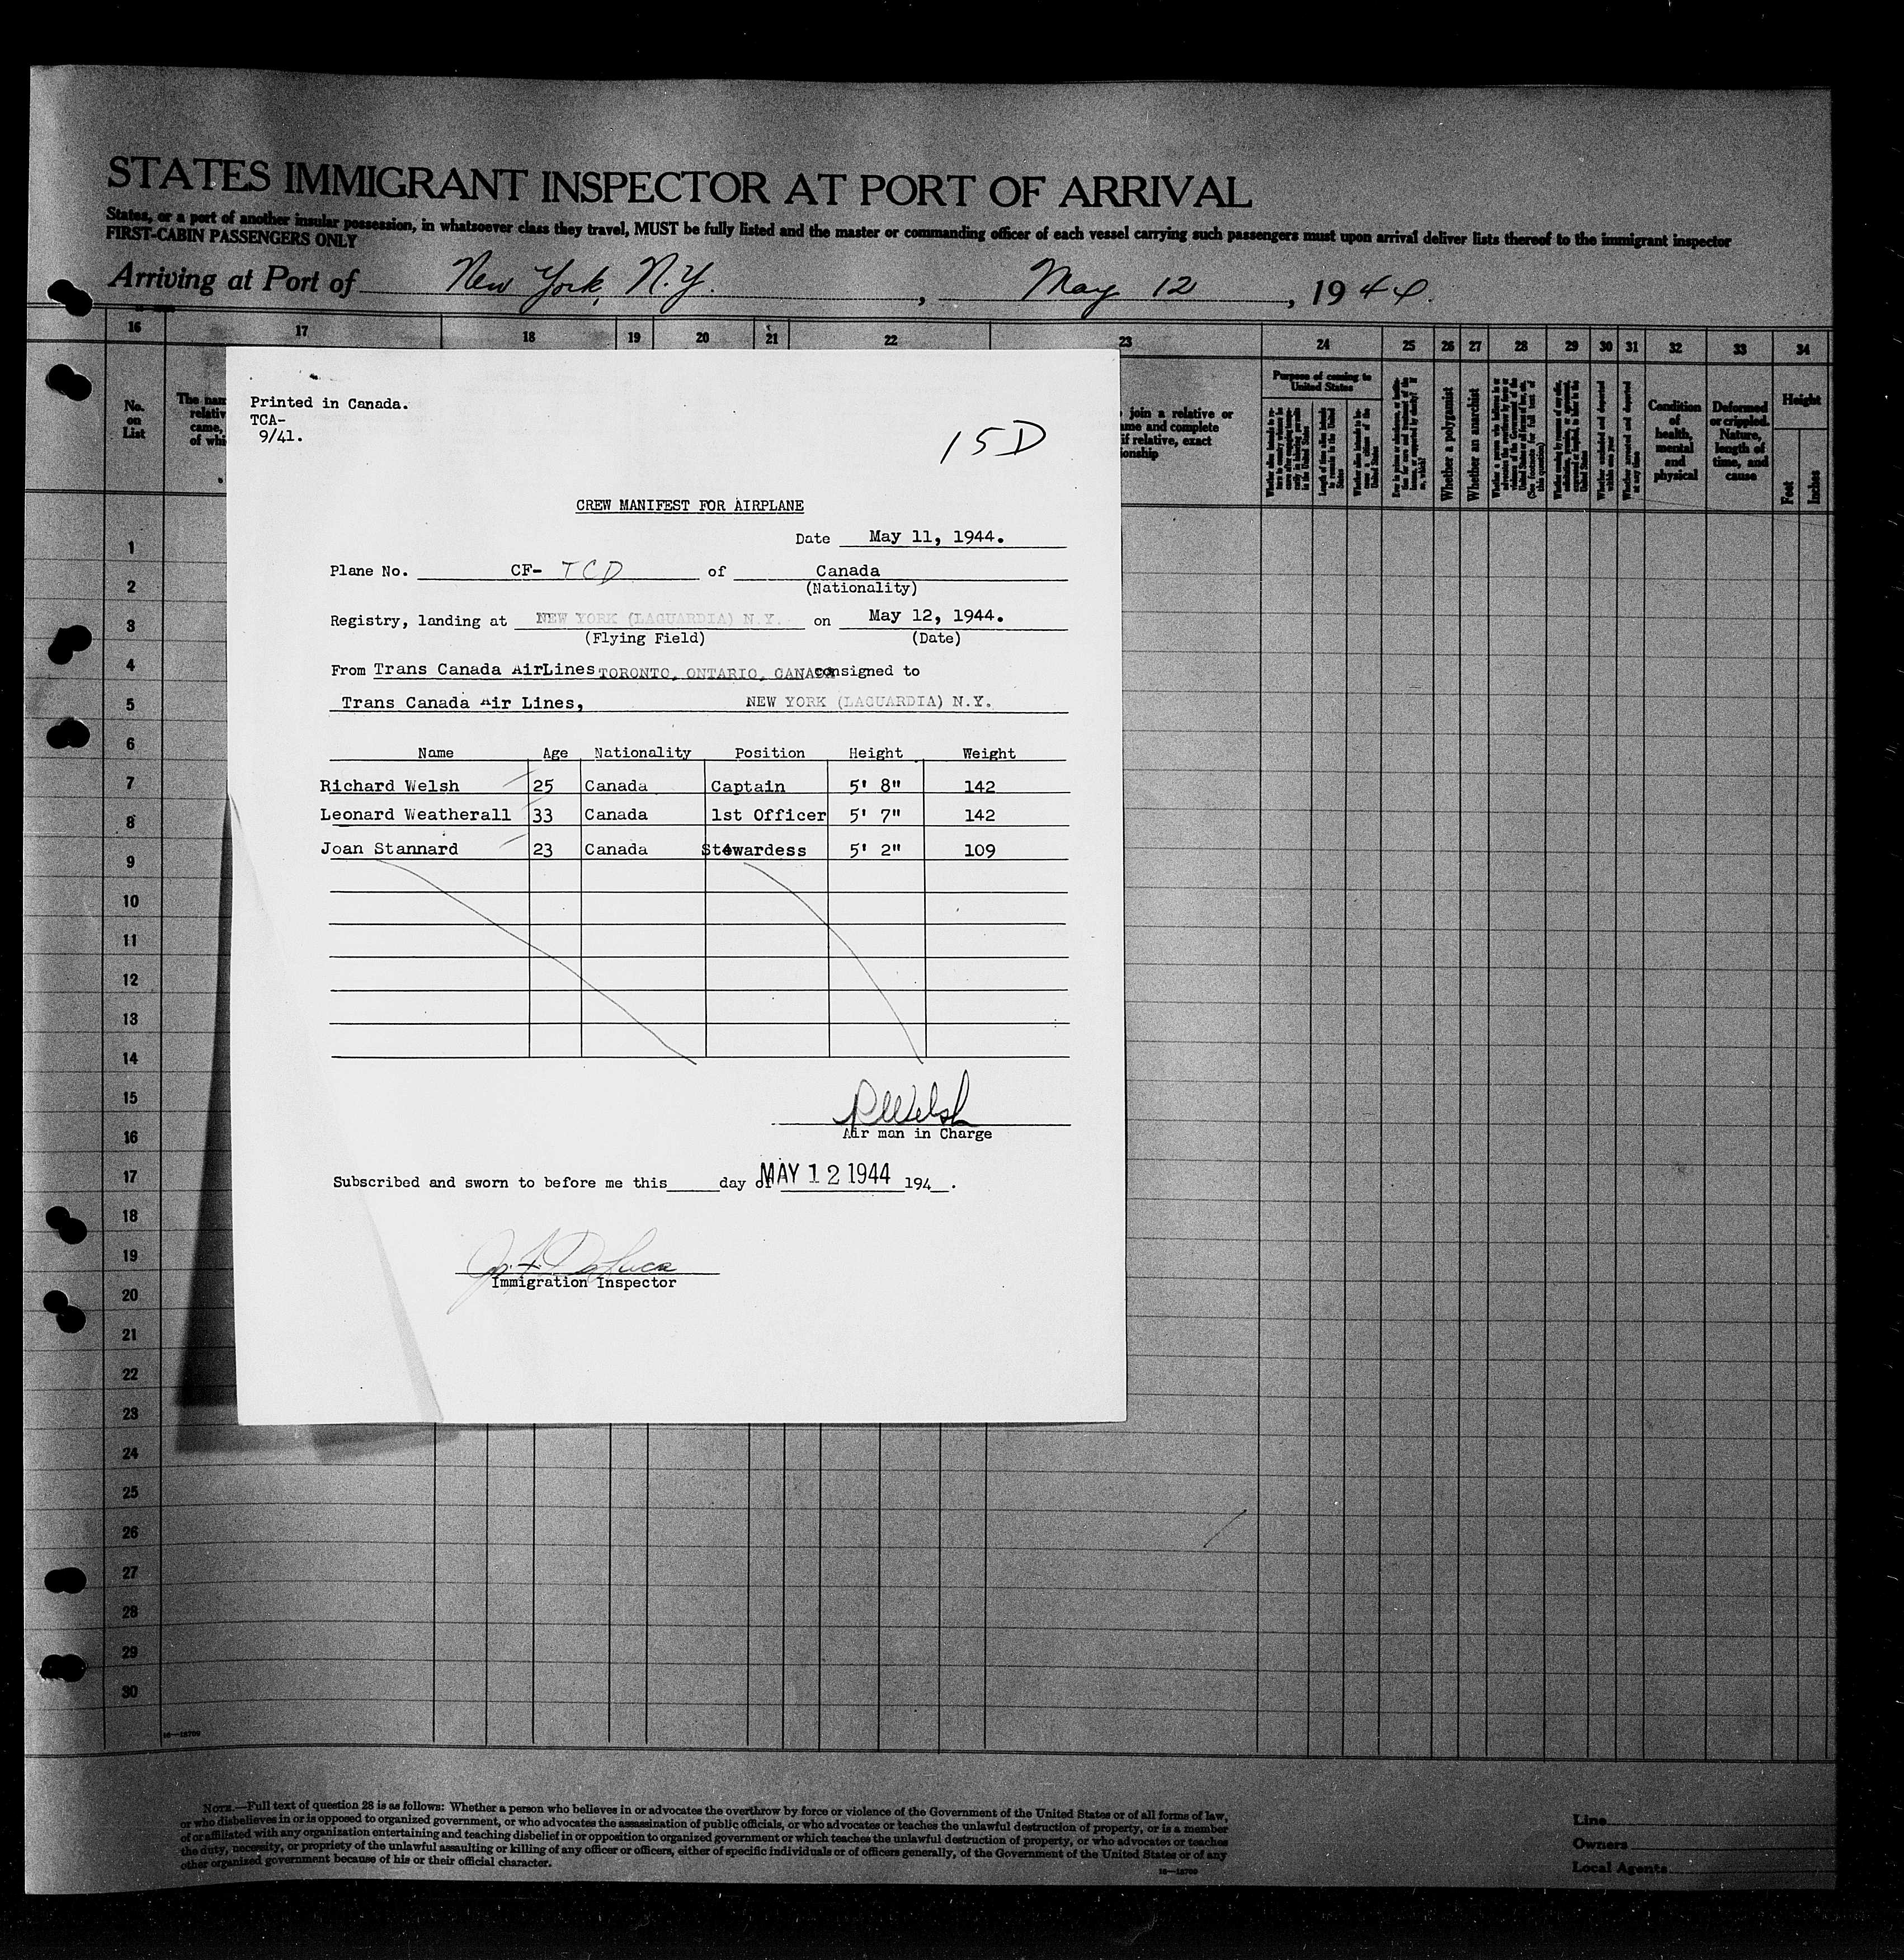 STATES IMMIGRANT INSPECTOR AT PORT OF ARRIVAL
States, or a port of another insular possession, in whatsoever class they travel, MUST be fully listed and the master or commanding officer of each vessel carrying such passengers must upon arrival deliver lists thereof to the immigrant inspector
FIRST-CABIN PASSENGERS ONLY
Arriving at Port of New York, N.Y. , May 12 , 1944.
16 17 18 19 20 21 22 23 24 25 26 27 28 29 30 31 32 33 34
No. on List
The nam
relativ
came,
of whi
join a relative or
ame and complete
if relative, exact
ionship
Purpose of coming to United States
Whether a polygamist
Whether an anarchist
Condition of health, mental and physical
Deformed or crippled. Nature, length of time, and cause
Height
Feet
Inches
Printed in Canada.
TCA-
9/41.
15D
CREW MANIFEST FOR AIRPLANE
Date May 11, 1944.
Plane No. CF- TCD of Canada
(Nationality)
Registry, landing at NEW YORK (LAGUARDIA) N.Y. on May 12, 1944.
(Flying Field) (Date)
From Trans Canada AirLines TORONTO, ONTARIO, CANADA consigned to
Trans Canada Air Lines, NEW YORK (LAGUARDIA) N.Y.
Name Age Nationality Position Height Weight
Richard Welsh 25 Canada Captain 5' 8" 142
Leonard Weatherall 33 Canada 1st Officer 5' 7" 142
Joan Stannard 23 Canada Stewardess 5' 2" 109
RWelsh
Air man in Charge
Subscribed and sworn to before me this day of MAY 12 1944 194 .
Jos. F. DeLuca
Immigration Inspector
1
2
3
4
5
6
7
8
9
10
11
12
13
14
15
16
17
18
19
20
21
22
23
24
25
26
27
28
29
30
16—18709
NOTE.—Full text of question 28 is as follows: Whether a person who believes in or advocates the overthrow by force or violence of the Government of the United States or of all forms of law,
or who disbelieves in or is opposed to organized government, or who advocates the assassination of public officials, or who advocates or teaches the unlawful destruction of property, or is a member
of or affiliated with any organization entertaining and teaching disbelief in or opposition to organized government or which teaches the unlawful destruction of property, or who advocates or teaches
the duty, necessity, or propriety of the unlawful assaulting or killing of any officer or officers, either of specific individuals or of officers generally, of the Government of the United States or of any
other organized government because of his or their official character.
16—18709
Line
Owners
Local Agents